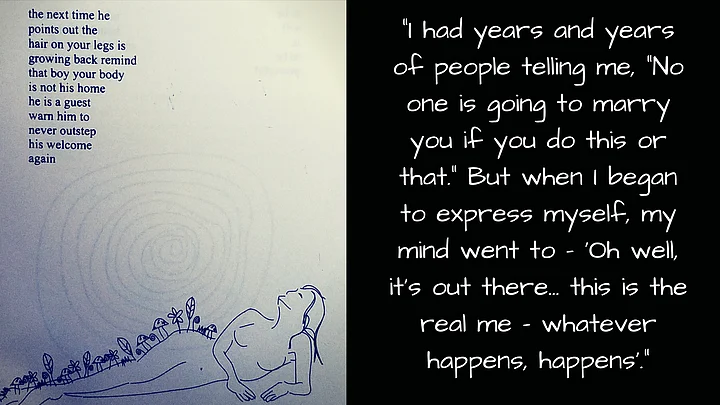 the next time he
points out the
hair on your legs is
growing back remind
that boy your body
is not his home
he is a guest
warn him to
never outstep
his welcome
again
"I had years and years
of people telling me, "No
one is going to marry
you if you do this or
that." But when I began
to express myself, my
mind went to - 'Oh well,
it's out there... this is the
real me - whatever
happens, happens'."